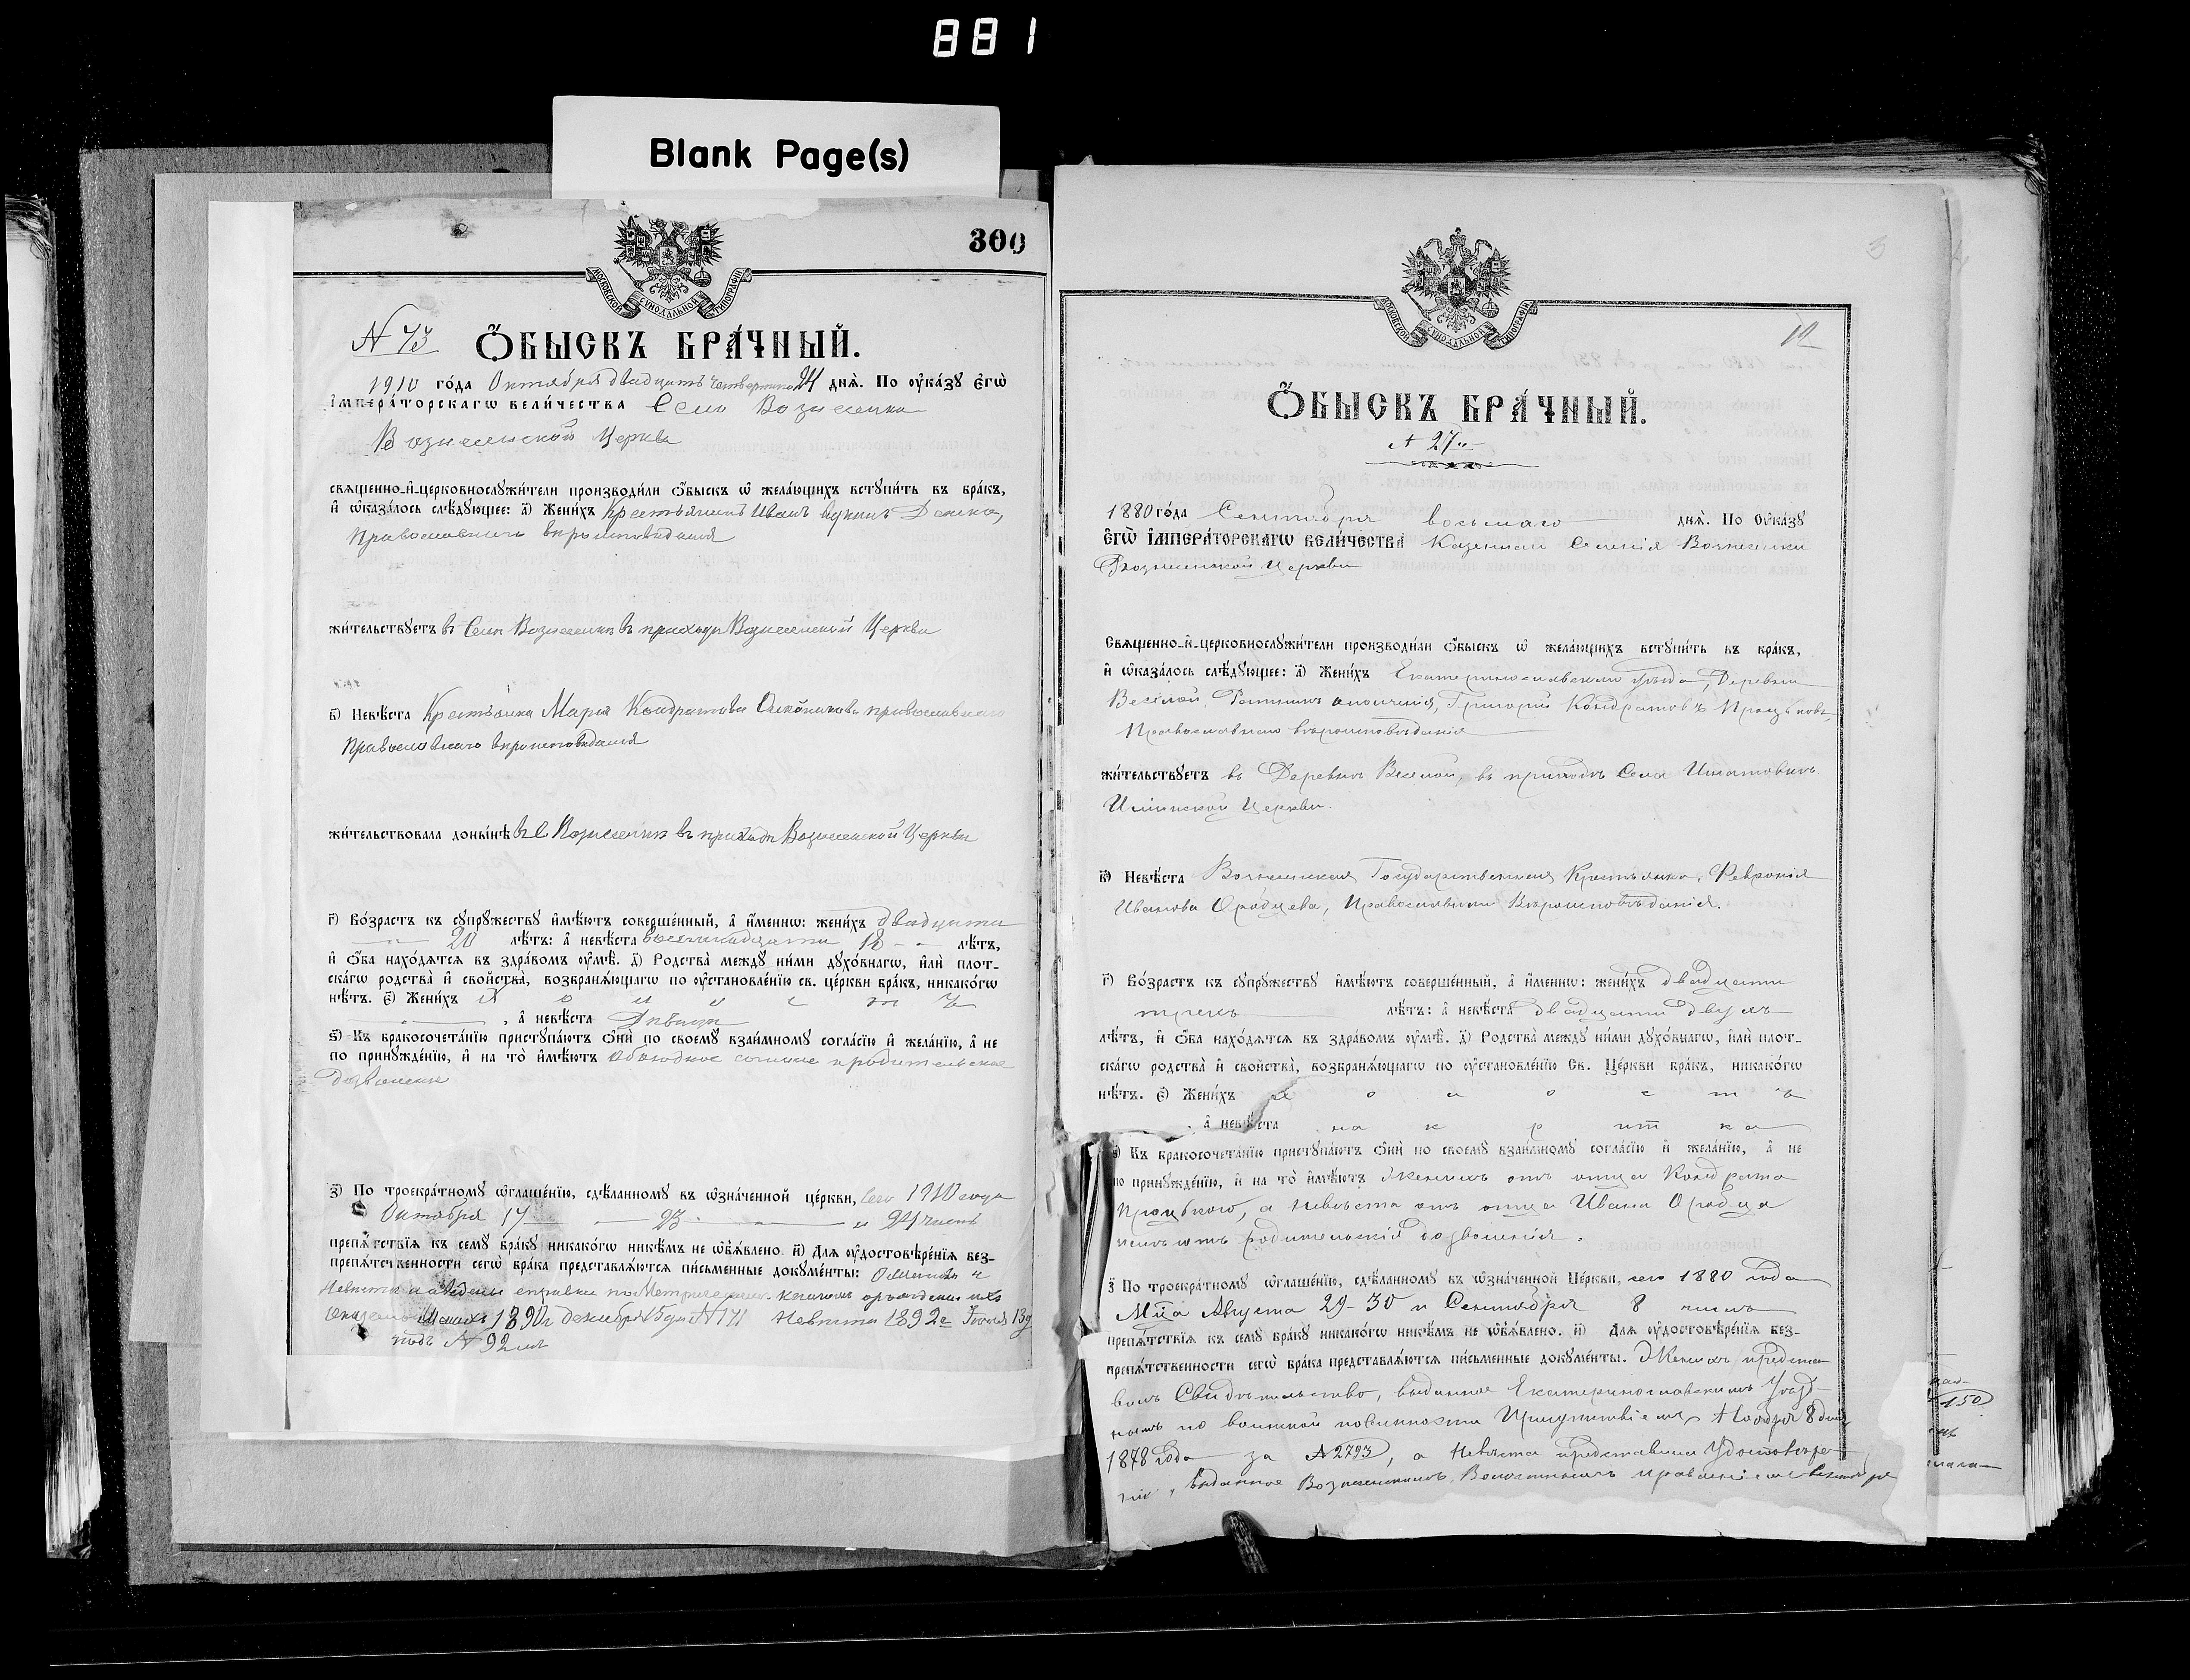 881
Blank Page(s)
300
МОСКОВСКОЙ СѴНОДАЛЬНОЙ ТИПОГРАФІИ
N 73
Ѻ҆БЫСКЪ БРА́ЧНЫЙ.
1910 го́да Октября двадцать четвертаго 24 днѧ̀. По ᲂу҆ка́зꙋ Є҆гѡ̀
І҆мпера́торскагѡ вели́чества Села Вознесенки
Вознесенской Церкви
свѧще́нно-и҆-церковнослꙋжи́тели производи́ли ѻ҆́быскъ ѡ҆ жела́ющихъ встꙋпи́ть въ бра́къ,
и҆ ѡ҆каза́лось слѣ́дꙋющее: а҃) Жени́хъ Крестьянинъ Иванъ
Православнаго вероисповедания
жи́тельствꙋетъ в Селе Вознесенке в приходе Вознесенской Церкви
в҃) Невѣ́ста Крестьянка Мария Кондратова православнаго
Православнаго вероисповедания
жи́тельствовала доны́нѣ в с Вознесенке в приходе Вознесенской Церкви
г҃) Во́зрастъ къ сꙋпрꙋ́жествꙋ и҆мѣ́ютъ соверше́нный, а҆ и҆́меннѡ: жени́хъ двадцати
20 лѣ́тъ: а҆ невѣ́ста восемнадцати 18 лѣ́тъ,
и҆ ѻ҆́ба нахо́дѧтсѧ въ здра́вомъ ᲂу҆мѣ̀. д҃) Родства̀ междꙋ̀ ни́ми дꙋхо́внагѡ, и҆лѝ плот-
ска́гѡ родства̀ и҆ сво́йства, возбранѧ́ющагѡ по ᲂу҆становле́нїю св. це́ркви бра́къ, никако́гѡ
нѣ́тъ. є҃) Жени́хъ холостъ
, а҆ невѣ́ста Девица
ѕ҃) Къ бракосочета́нїю пристꙋпа́ютъ ѻ҆нѝ по своемꙋ̀ взаи́мномꙋ согла́сїю и҆ жела́нїю, а҆ не
по принꙋжде́нїю, и҆ на то̀ и҆мѣ́ютъ обоюдное согласие и родительское
дозволение
з҃) По троекра́тномꙋ ѡ҆глаше́нїю, сдѣ́ланномꙋ въ ѡ҆зна́ченной це́ркви, сего 1910 года
Октября 17 23 и 24 числъ
препѧ́тствїѧ къ семꙋ̀ бра́кꙋ никако́гѡ никѣ́мъ не ѡ҆б̾ѧ́влено. и҃) Длѧ ᲂу҆достовѣре́нїѧ без-
препѧ́тственности сегѡ̀ бра́ка представлѧ́ютсѧ пи́сьменные докꙋме́нты: О женихе и
Невесте наведены справки по Метрическим книгам о рождении их
1890 г декабря N 171 Невеста 1892 г
подъ N 92
3
12
МОСКОВСКОЙ СѴНОДАЛЬНОЙ ТИПОГРАФІИ
Ѻ҆БЫСКЪ БРА́ЧНЫЙ.
N 27
1880 го́да Сентября восьмаго днѧ̀. По Оу҆ка́зꙋ
Є҆гѡ̀ І҆мпера́торскагѡ Вели́чества Казеннаго Селенія Вознесенки
Вознесенской Церкви
Свѧще́нно-и҆-церковнослꙋжи́тели производи́ли ѻ҆́быскъ ѡ҆ жела́ющихъ встꙋпи́ть въ бра́къ,
и҆ ѡ҆каза́лось слѣ́дꙋющее: а҃) Жени́хъ Екатеринославскаго уѣзда, Деревни
Веселой, Ратникъ ополченія, Григорій Кондратовъ
Православнаго вѣроисповѣданія
жи́тельствꙋетъ въ Деревнѣ Веселой, въ приходѣ Села
Церкви.
в҃) Невѣ́ста Вознесенская Государственная Крестьянка, Февронія
Иванова Оробцева, Православнаго Вѣроисповѣданія.
г҃) Во́зрастъ къ сꙋпрꙋ́жествꙋ и҆мѣ́ютъ соверше́нный, а҆ и҆́меннѡ: жени́хъ двадцати
трехъ лѣ́тъ: а҆ невѣ́ста двадцати двухъ
лѣ́тъ, и҆ ѻ҆́ба нахо́дѧтсѧ въ здра́вомъ ᲂу҆мѣ̀. д҃) Родства̀ междꙋ̀ ни́ми дꙋхо́внагѡ, и҆лѝ плот-
ска́гѡ родства̀ и҆ сво́йства, возбранѧ́ющагѡ по ᲂу҆становле́нїю Св. Це́ркви бра́къ, никако́гѡ
нѣ́тъ. є҃) Жени́хъ холостъ
, а҆ невѣ́ста накритка
ѕ҃) Къ бракосочета́нїю пристꙋпа́ютъ ѻ҆нѝ по своемꙋ̀ взаи́мномꙋ согла́сїю и҆ жела́нїю, а҆ не
по принꙋжде́нїю, и҆ на то̀ и҆мѣ́ютъ Женихъ отъ отца Кондрата
а Невѣста отъ отца Ивана Оробца
имѣютъ родительскія дозволенія.
з҃ По троекра́тномꙋ ѡ҆глаше́нїю, сдѣ́ланномꙋ въ ѡ҆зна́ченной Це́ркви, сего 1880 года
Мца Августа 29-30 и Сентября 8 числъ
препѧ́тствїѧ къ семꙋ̀ бра́кꙋ никако́гѡ никѣ́мъ не ѡ҆б̾ѧ́влено. и҃) Длѧ ᲂу҆достовѣре́нїѧ без-
препѧ́тственности сегѡ̀ бра́ка представлѧ́ютсѧ пи́сьменные докꙋме́нты. Женихъ предста-
вилъ Свидѣтельство, выданное Екатеринославскимъ Уѣзд-
нымъ по воинской повинности Присутствіемъ Ноября 8 дня
1878 года за N 2793, а Невѣста представила Удостовѣре-
ніе, выданное Вознесенскимъ Волостнымъ правленіемъ Сентября
150